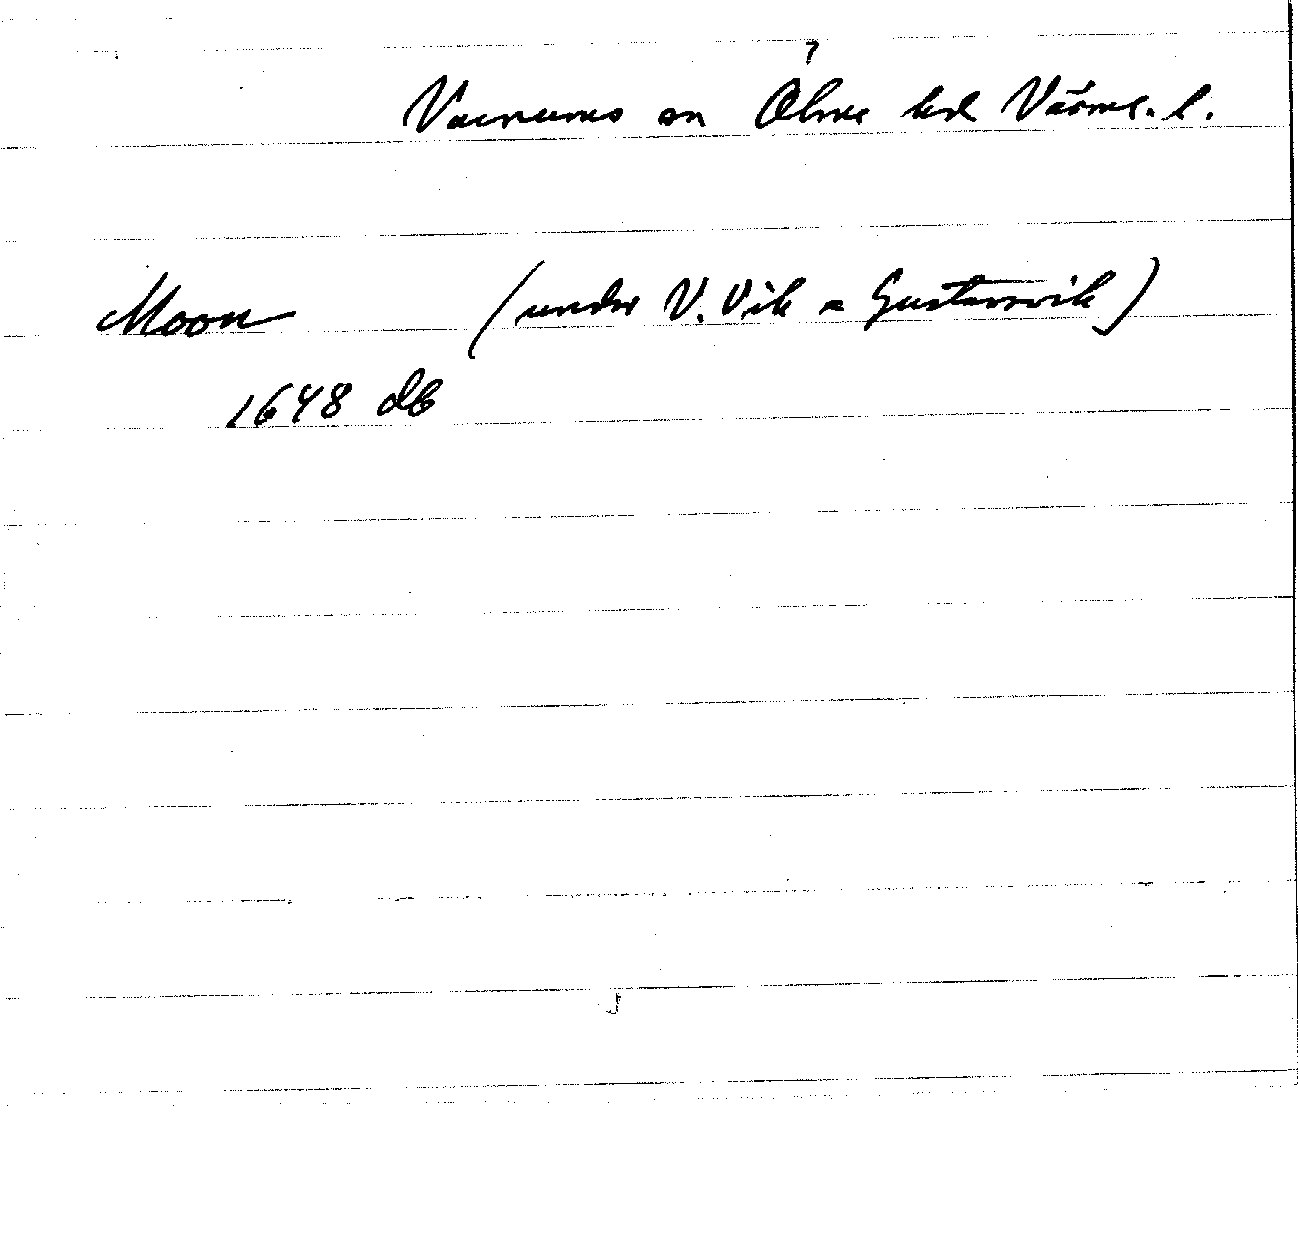 ?
Varnums sn Ölme hd Värml. l.
Moon (under V. Vik o Gustavsvik)
1648 db